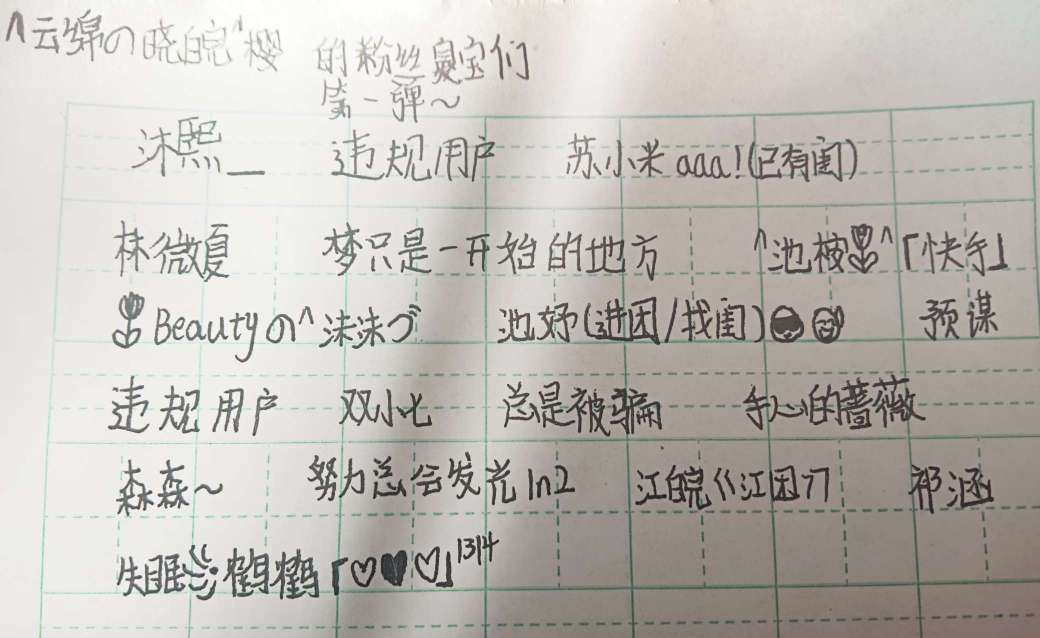 ^云绵の晓皖^樱 的粉丝宝们
第一弹~
沐熙_ 违规用户 苏小米aaa!(已有闺)
林微夏 梦只是一开始的地方 ^池桉🌷^「快手」
🌷Beautyの^沫沫づ 池妤(进团/找闺) 预谋
违规用户 双小七 总是被骗 手心的蔷薇
森森~ 努力总会发光1n2 江皖巜江团77 祁涵
失眠 鹤鹤「♡♥♡」1314